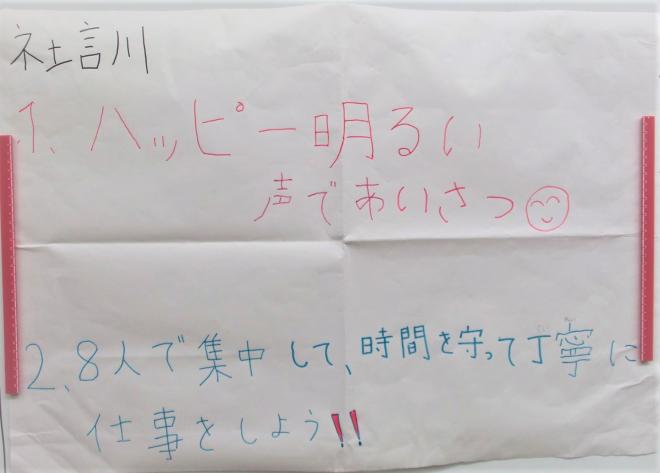 社訓
1、ハッピー明るい
声であいさつ
2、8人で集中して、時間を守って丁寧に
仕事をしよう!!